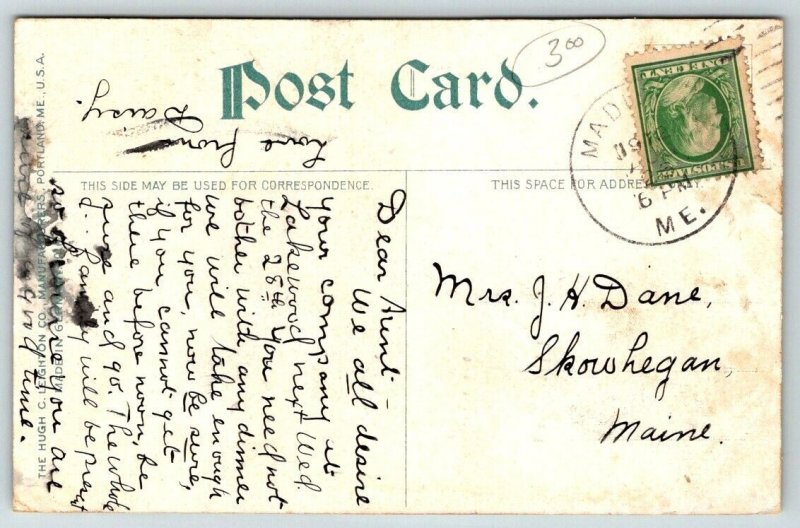 300
Post Card.
THIS SIDE MAY BE USED FOR CORRESPONDENCE.
THIS SPACE FOR ADDRESS ONLY.
THE HUGH C. LEIGHTON CO., MANUFACTURERS, PORTLAND, ME., U.S.A.
MADE IN
MAD
6 PM
ME.
Dear Aunt-
We all desire
your company at
Lakewood next Wed.
the 28th. You need not
bother with any dinner
we will take enough
for you, now be sure,
if you cannot get
there before noon, be
sure and go. The whole
family will be present
so
you are
time.
Love from
Daisy.
Mrs. J. H. Dane,
Skowhegan,
Maine.